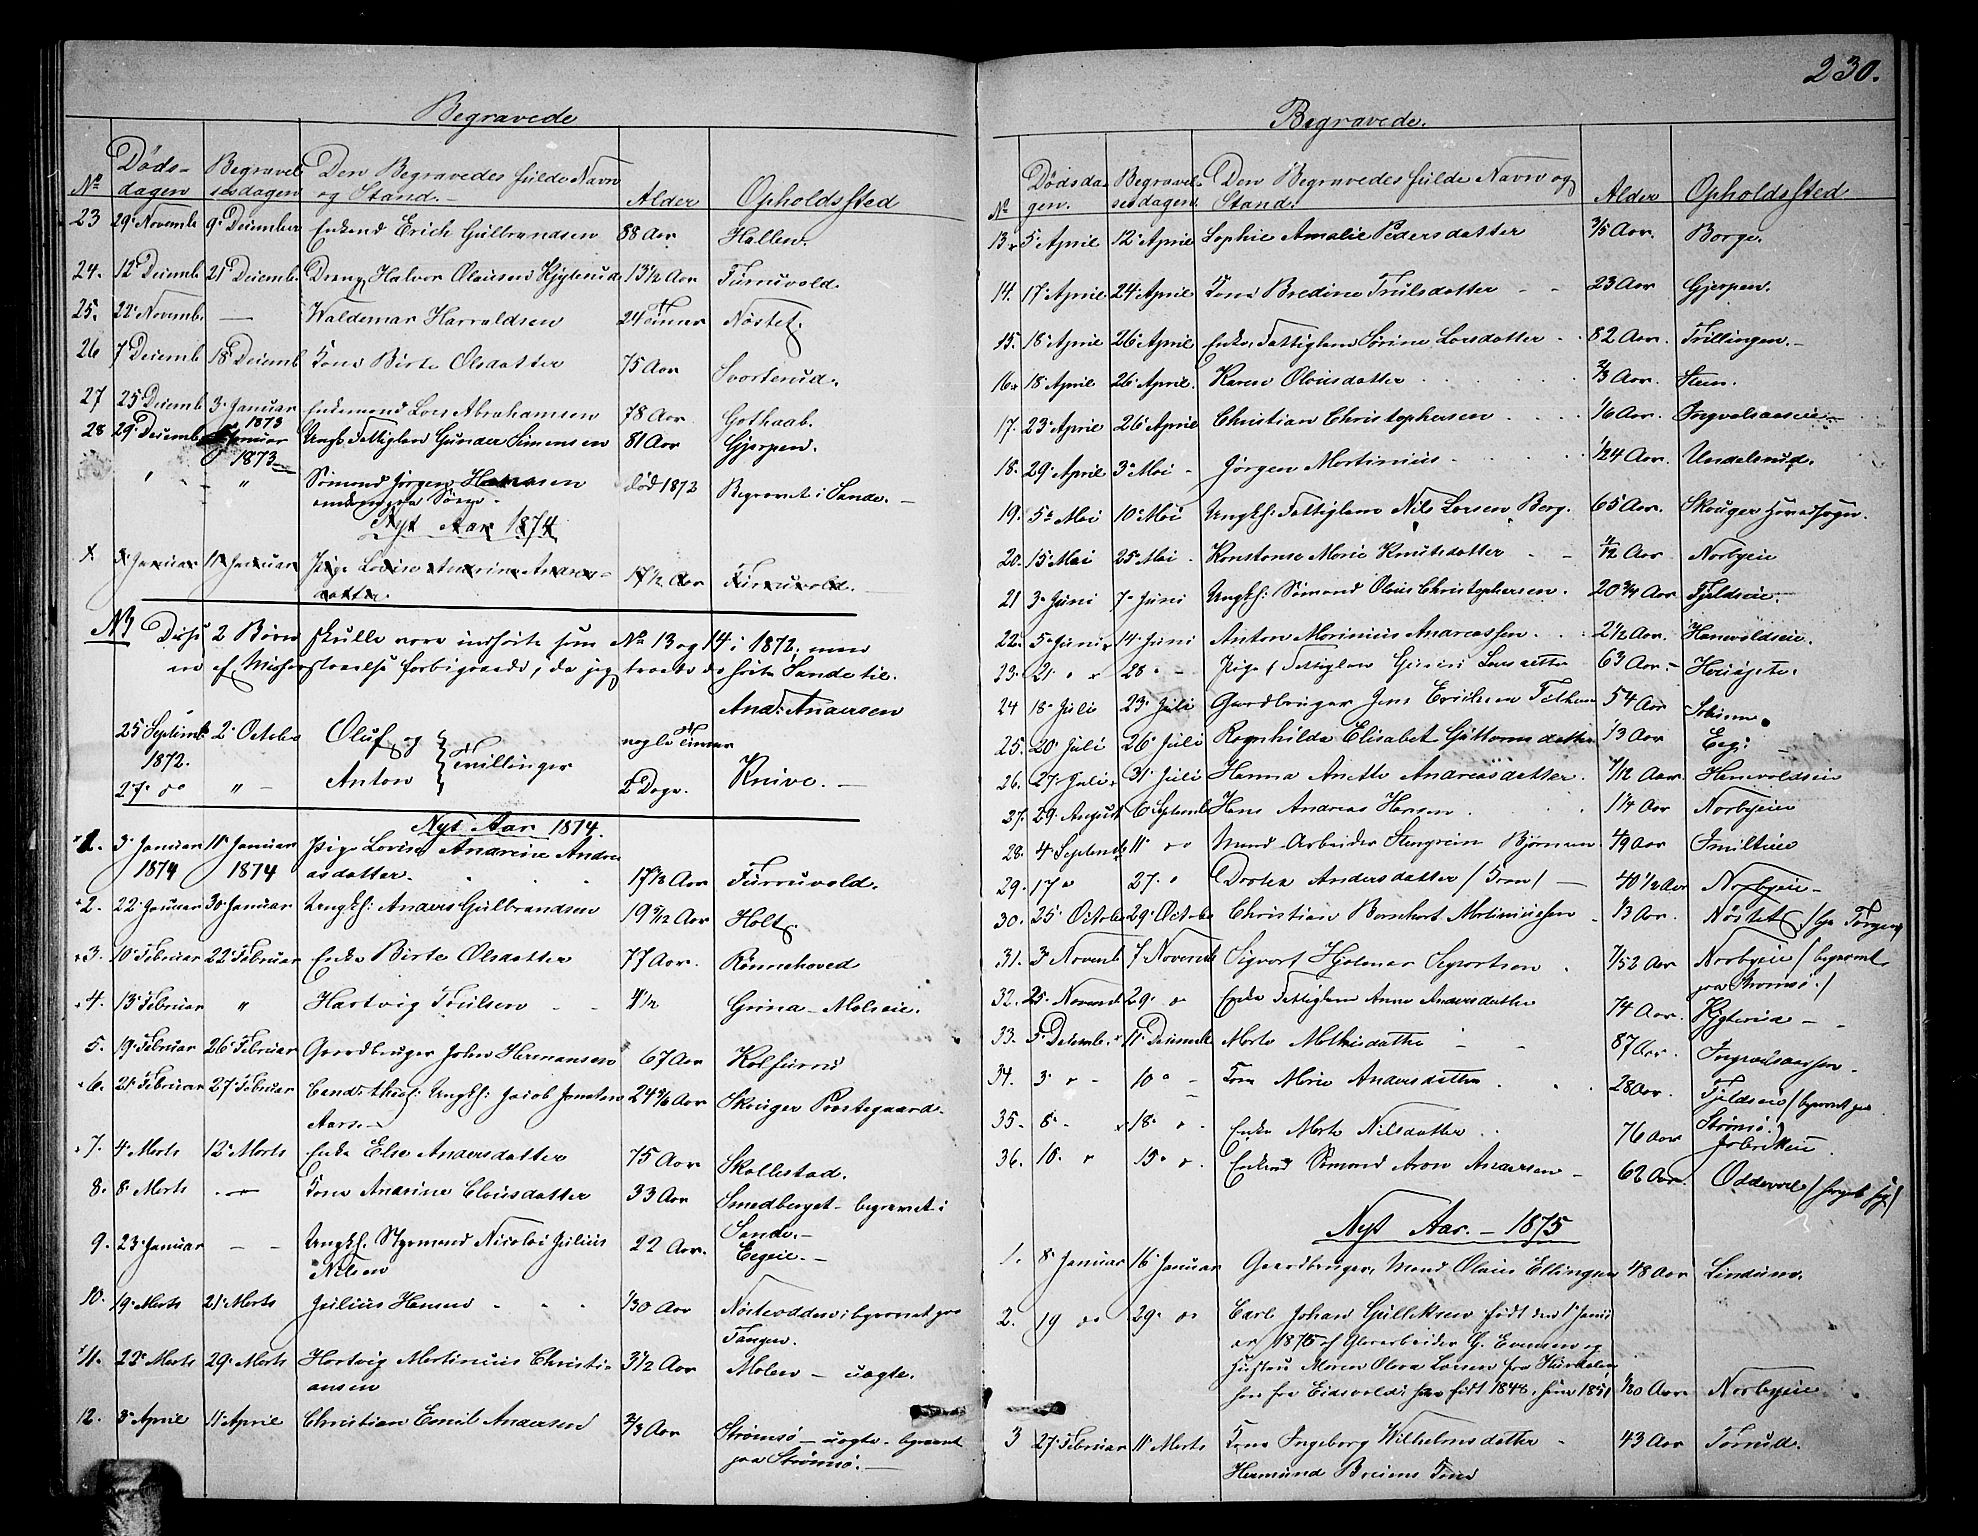 230.
Begravede
No Døds-dagen Begravelsesdagen Den Begravedes fulde Navn og Stand. Alder Opholdssted
23 29 Novemb 9 December Enkemd Erich Gulbrandsen 88 Aar Hallen.
24. 12 Decemb. 21 Decemb. Dreng Halvor Olausen 13 1/2 Aar Furuvold.
25. 22 Novemb. — Waldemar Harraldsen 24 Timer Nøstet.
26 7 Decemb 18 Decemb Kone Birte Olsdatter 75 Aar Svarterud.
27 25 Decemb 3 Januar 1873 Enkemand Lars Abrahamsen 78 Aar Gothaab.
28 29 Decemb Januar 1873 Ungk. Fattiglem Gunder Simensen 81 Aar Gjerpen.
" " Sømand Jørgen Hansen død 1872 Begravet i Sande. —
Nyt Aar 1874
1. 3 Januar 11 Januar Pige Lovise Andrine Andreas-
datter. 17 1/2 Aar Furruvold. —
NB Disse 2 Børn skulle være indførte som No 13 og 14 i 1872, men
en af Misforstaaelse forbigaaede, da jeg troede de hørte Sande til.
And. Andersen
25 Septemb. 2 Octobe Oluf og Tvillinger nogle Timer
1872.
27 do " — Anton 2 Dage. Knive. —
Nyt Aar 1874.
1. 3 Januar 11 Januar Pige Lovise Andrine Andre
1874 1874 asdatter. 17 1/2 Aar Furruvold.
2. 22 Januar 30 Januar Ungk: Anders Gulbrandsen 19 5/12 Aar Holt.
3. 10 Februar 22 Februar Enke Birte Olsdatter 77 Aar. Rønnehoved
4. 13 Februar " Hartvig Truilsen 4 1/2 Grina — Moleie.
5. 19 Februar 26 Februar Gaardbruger John Hermansen 67 Aar Kolfurru
6. 21 Februar 27 Februar Cand: theol: Ungk: Jacob Jonsten 24 5/6 Aar Skouger Prestegaard.
Aars. —
7. 4 Marts 12 Marts Enke Else Andersdatter 75 Aar Skallestad.
8. 8 Marts — Kone Andrine Clausdatter 33 Aar Smedberget — begravet i
Sande. —
9. 23 Januar — — Ungk. Styrmand Nicolai Julius 22 Aar. Eegeie. —
Nilsen
10. 19 Marts 21 Marts Julius Hansen 1/30 Aar Nøsteodden i begravet paa
Tangen.
11. 22 Marts 29 Marts Hartvig Martinuis Christi- 3 1/2 Aar Molen — uægte.
ansen
12. 3 April 11 April Christian Emil Andersen 2/3 Aar Strømsø — uægte — begravet
paa Strømsø. —
Begravede.
No Dødsdagen. Begravelsesdagen Den Begravedes fulde Navn og Stand. Alder Opholdssted
13. 5 April 12 April Sophie Amalie Pedersdatter 3/5 Aar. Borge.
14. 17 April 24 April Kone Bredine Trulsdatter 23 Aar Gjerpen.
15. 18 April 26 April Enke, Fattiglem Sørine Larsdatter 82 Aar. Trillingen. —
16. 18 April 26 April. Karen Olausdatter 2/3 Aar. Steen.
17. 23 April 26 April Christian Christophersen 1/6 Aar.
18. 29 April 3 Mai Jørgen Martinius 1/24 Aar. Undelsrud.
19. 5 Mai 10 Mai Ungk: Fattiglem Nils Larsen Berg. 65 Aar. Skouger Hovedsogn.
20. 15 Mai 25 Mai Konstanse Marie Knutsdatter /12 Aar Norbyeie
21 3 Juni 7 Juni Ungk: Sømand Olaus Christophersen. 20 3/4 Aar Fjeldseie.
22. 5 Juni 14 Juni Anton Marinius Andreassen 2 1/2 Aar. Hanevoldseie.
23. 21 " 28 " Pige (Fattiglem Larsdatter 63 Aar.
24 18 Juli 23 Juli Gaardbruger Jens Ericksen 54 Aar
25. 20 Juli 26 Juli Ragnhilda Elisabet Guttormsdatter 1/3 Aar Eeg.
26. 27 Juli 31 Juli Hanna Anette Andreasdatter. 7/12 Aar. Hanevoldseie
27. 29 August 6 Septemb Hans Andreas Hansen 1 1/4 Aar Norbyeie
28. 4 Septemb 11 do Mand Arbeider Stengrim Bjørnsen 49 Aar
29. 17 " 27. " Dortea Andersdatter / Kone / 40 1/2 Aar Norbyeie —
30. 25 Octobe 29 Octobe Christian Bernhart Martiniussen 1/3 Aar. Nøstet,
31. 3 Novemb 7 Novemb Sigvart Hjalmar Sigvartsen 7/52 Aar Norbyeie / begravet
paa Strømsø. /
32. 25 Novemb 29 do Enke Fattiglem Anne Andersdatter 74 Aar.
33. 5 Decemb. 11 Decemb Marte Mathisdatter 87 Aar.
34. 3 " 10 " Kone Marie Andersdatter 28 Aar. Fjeldseie / begravet paa
Strømsø. /
35. 8 18 " Enke Marte Nilsdatter 76 Aar
36. 10 " 15 " Enkemd Sømand Aron Andersen 62 Aar. Oddevale
Nyt Aar. — 1875
1. 8 Januar 16 Januar Gaardbruger, Mand Olaus Ellingsen 48 Aar Lindum.
2. 19 do 29 do Carl Johan Gulliksen født den 1 Janu
ar 1875 af Glasarbeider G. Evensen og
Hustru Maren Olava Larsen fra Hurdalen
han fra Eidsvold; han født 1848, hun 1851 1/20 Aar. Norbyeie
3 27 Februar 11 Marts Kone Ingeborg Wilhelmsdatter 43 Aar Torrud.
Hermund Kone